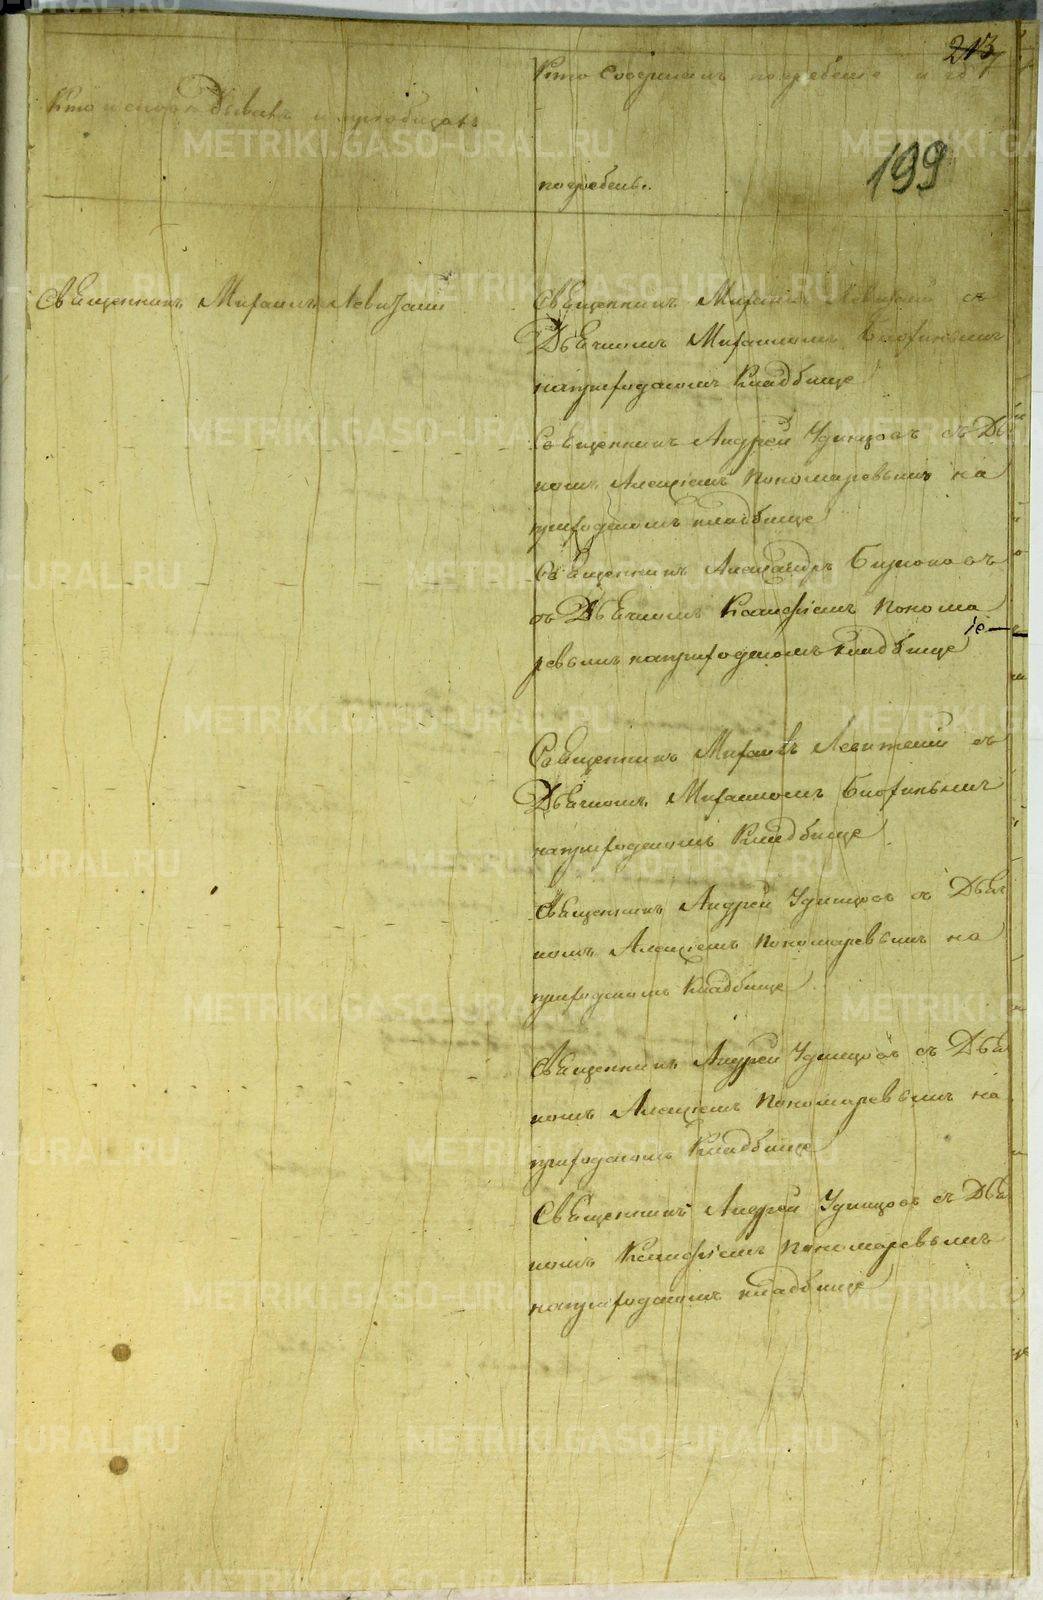 213
199
Кто исповѣдывалъ и пріобщалъ
Кто совершалъ погребеніе и гдѣ
погребенъ.
Священникъ Михаилъ Левицкій
Священникъ Михаилъ Левицкій съ
Дьячкомъ Михаиломъ
наприходскомъ Кладбище
Священникъ Андрей Удинцовъ съ Дья
комъ Алексіемъ Пономаревымъ на
приходскомъ кладбище
Священникъ Александръ Бирюковъ
съ Дьячкомъ Ксенофонтомъ Понома
ревымъ наприходскомъ кладбище
Священникъ Михаилъ Левицкій съ
Дьячкомъ Михаиломъ
наприходскомъ Кладбище
Священникъ Андрей Удинцовъ съ Дьяч
комъ Алексіемъ Пономаревымъ на
приходскомъ Кладбище
Священникъ Андрей Удинцовъ съ Дья
комъ Алексіемъ Пономаревымъ на
приходскомъ Кладбище
Священникъ Андрей Удинцовъ съ Дья
комъ Пономаревымъ
наприходскомъ кладбище
METRIKI.GASO-URAL.RU